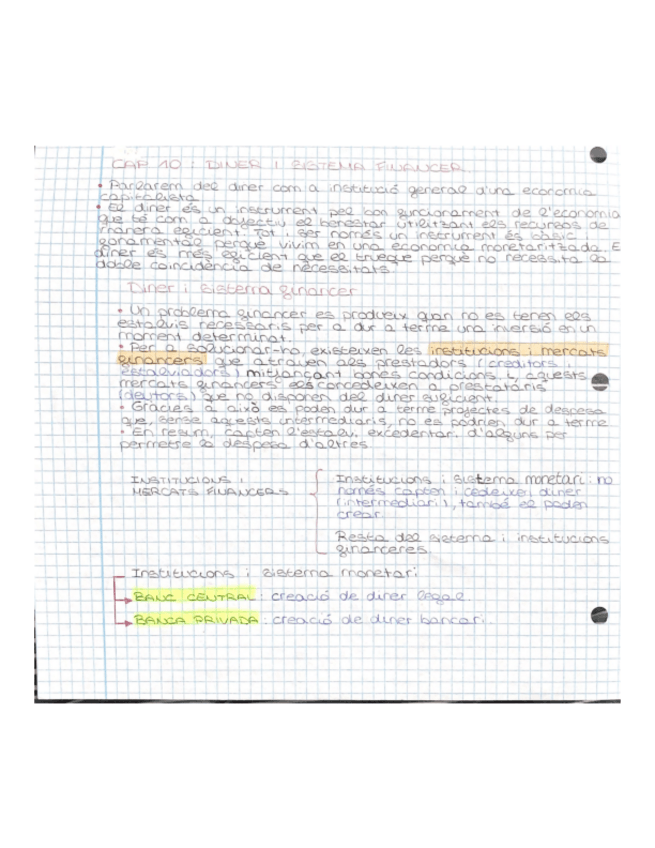 CAP 10 : DINER I SISTEMA FINANCER
• Parlarem del diner com a institució general d'una economia
capitalista
• El diner és un instrument pel bon funcionament de l'economia
que té com a objectiu el benestar utilitzant els recursos de
manera eficient. Tot i ser només un instrument és bàsic i
fonamental perquè vivim en una economia monetaritzada. E
diner és més eficient que el trueque perquè no necessita la
doble coincidència de necessitats.
Diner i sistema financer
• Un problema financer es produeix quan no es tenen els
estalvis necessaris per a dur a terme una inversió en un
moment determinat.
• Per a solucionar-ho, existeixen les institucions i mercats
financers que atrauen als prestadors (creditors i
estalviadors) mitjançant bones condicions i, aquests
mercats financers els concedeixen a prestataris
(deutors) que no disponen del diner suficient.
• Gràcies a això es poden dur a terme projectes de despesa
que, sense aquests intermediaris, no es podrien dur a terme
• En resum, capten l'estalvi excedentari d'alguns per
permetre la despesa d'altres.
INSTITUCIONS I
MERCATS FINANCERS
Institucions i sistema monetari: no
només capten i cedeixen diner
(intermediari), també el poden
crear
Resta del sistema i institucions
financeres.
Institucions i sistema monetari
BANC CENTRAL: creació de diner legal.
BANCA PRIVADA: creació de diner bancari.